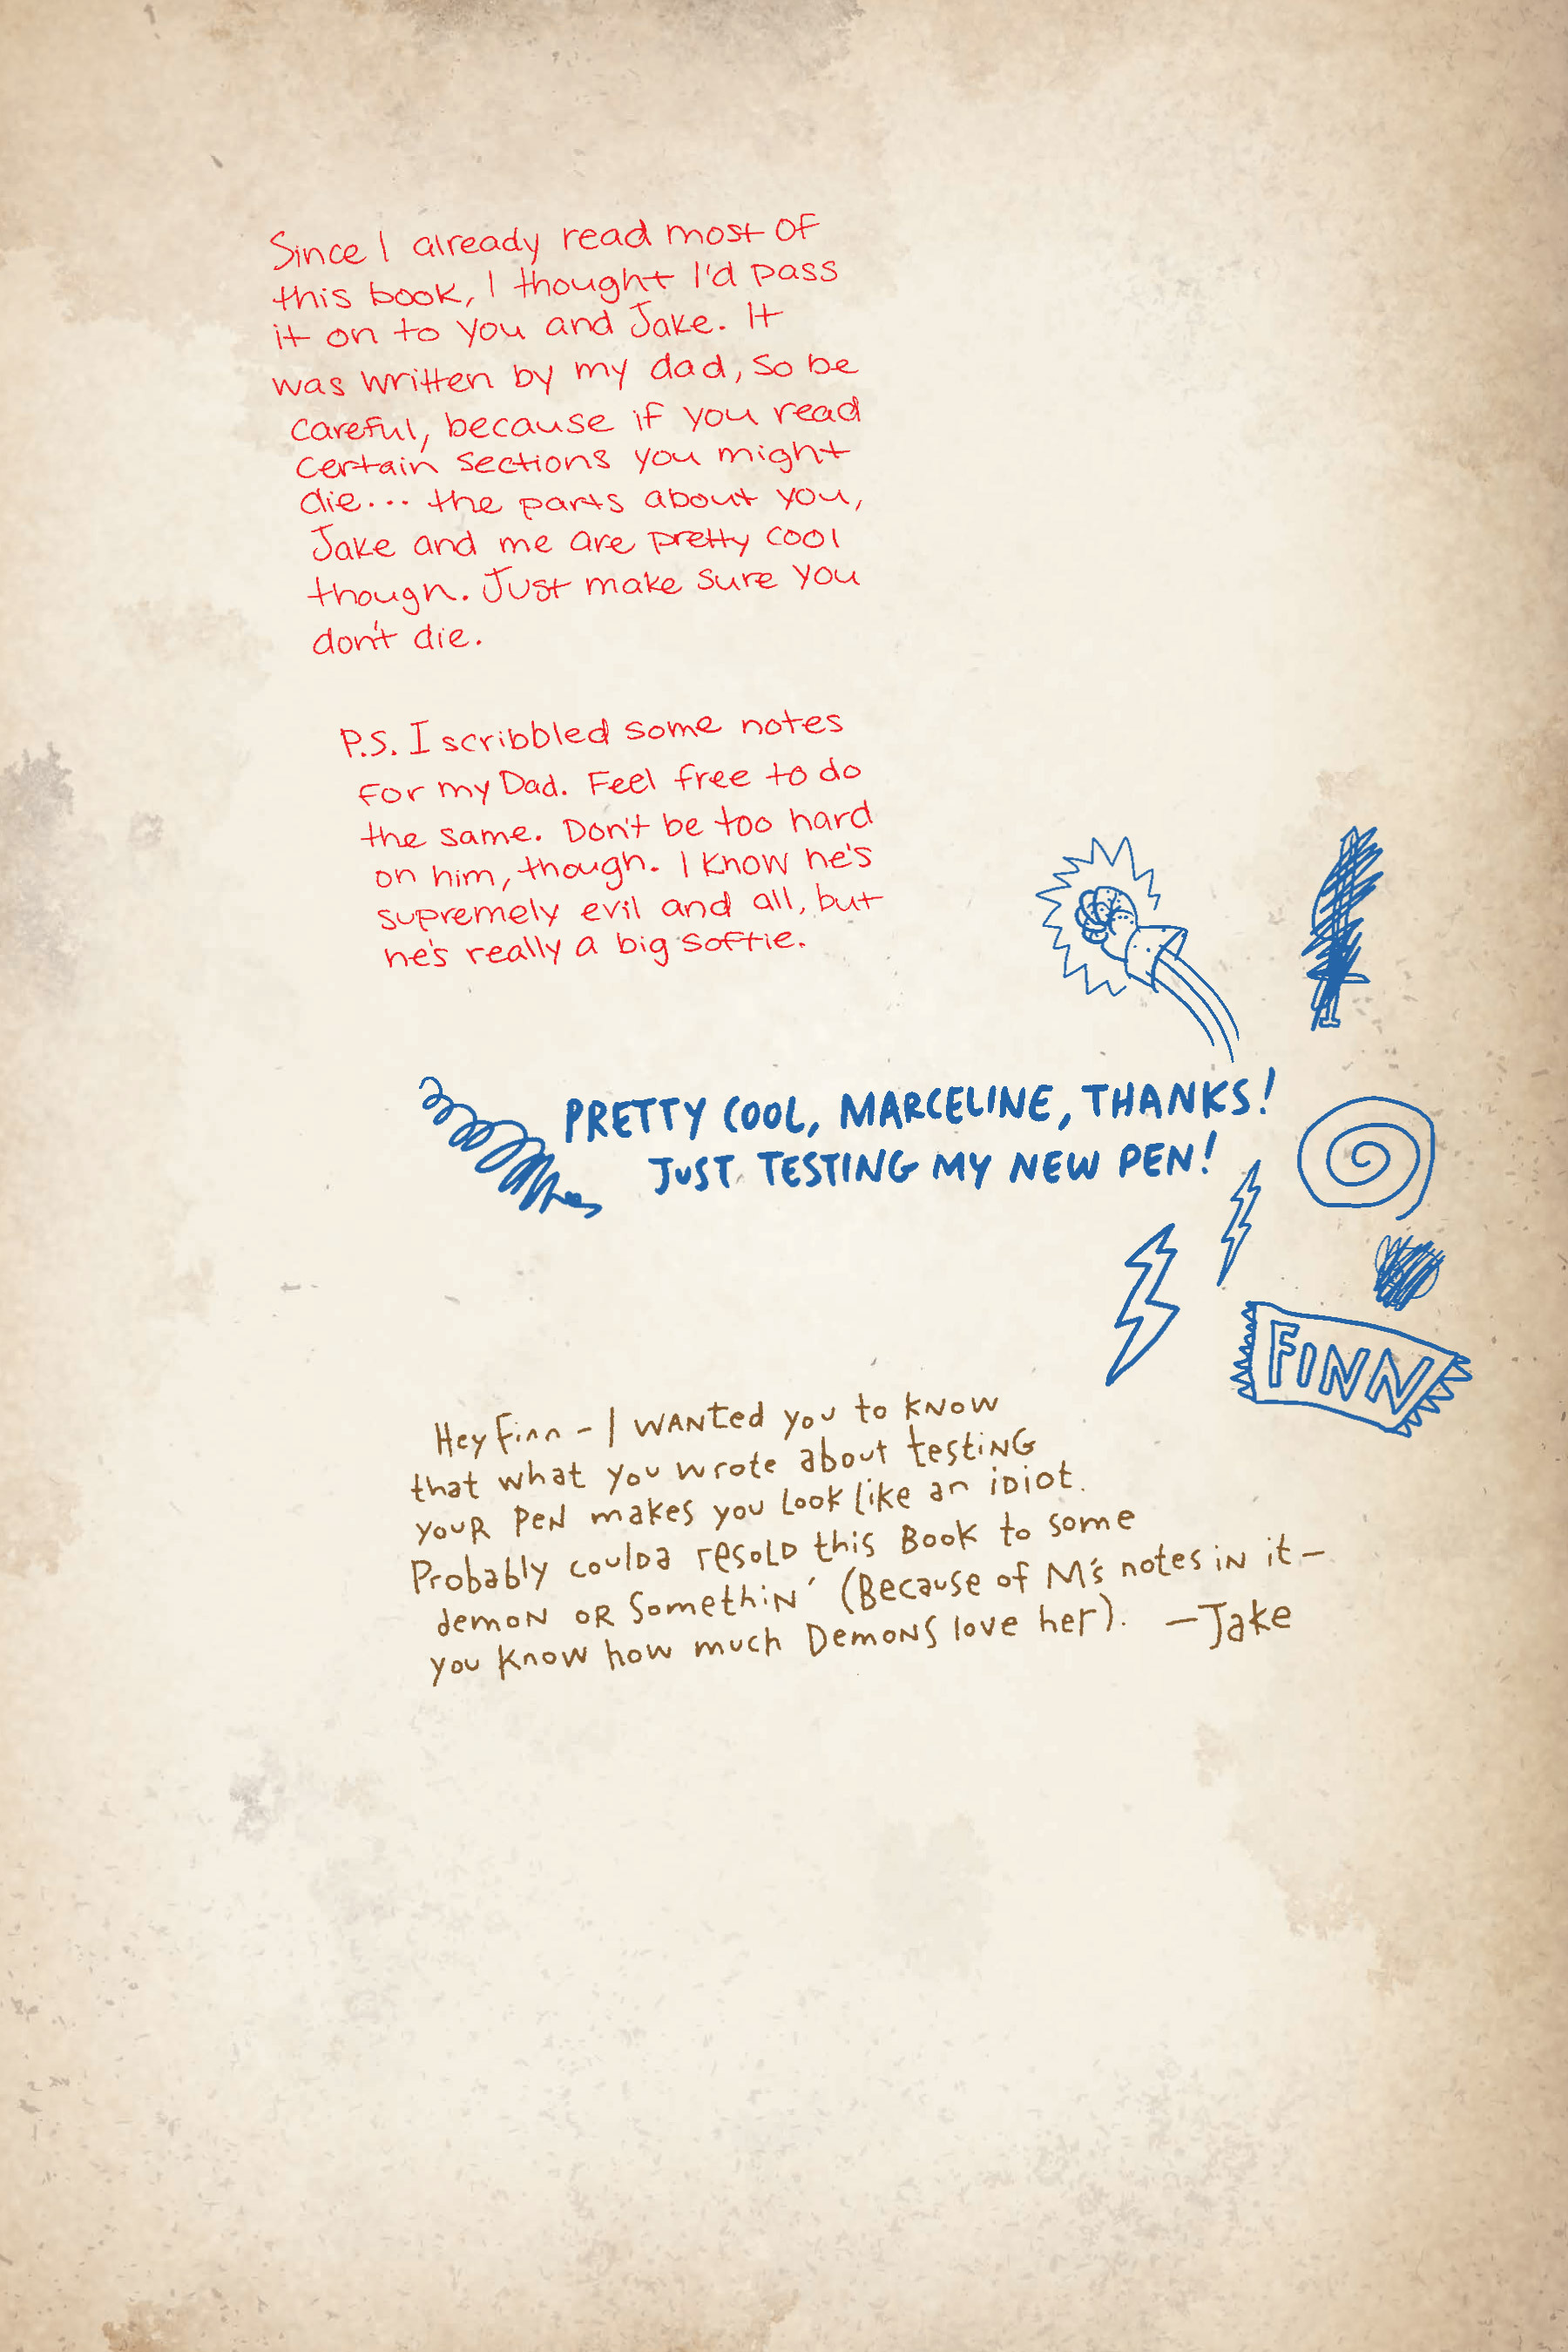 Since I already read most of
this book, I thought I'd pass
it on to you and Jake. It
was written by my dad, so be
careful, because if you read
certain sections you might
die... the parts about you,
Jake and me are pretty cool
though. Just make sure you
don't die.
P.S. I scribbled some notes
for my Dad. Feel free to do
the same. Don't be too hard
on him, though. I know he's
supremely evil and all, but
he's really a big softie.
PRETTY COOL, MARCELINE, THANKS!
JUST TESTING MY NEW PEN!
FINN
Hey Finn - I WANted you to kNow
that what you wrote about testiNG
youR PeN makes you Look like an iDiot.
Probably coulDa resoLD this Book to some
demoN oR SomethiN' (Because of M's notes iN it -
you know how much DemoNS love her). - Jake